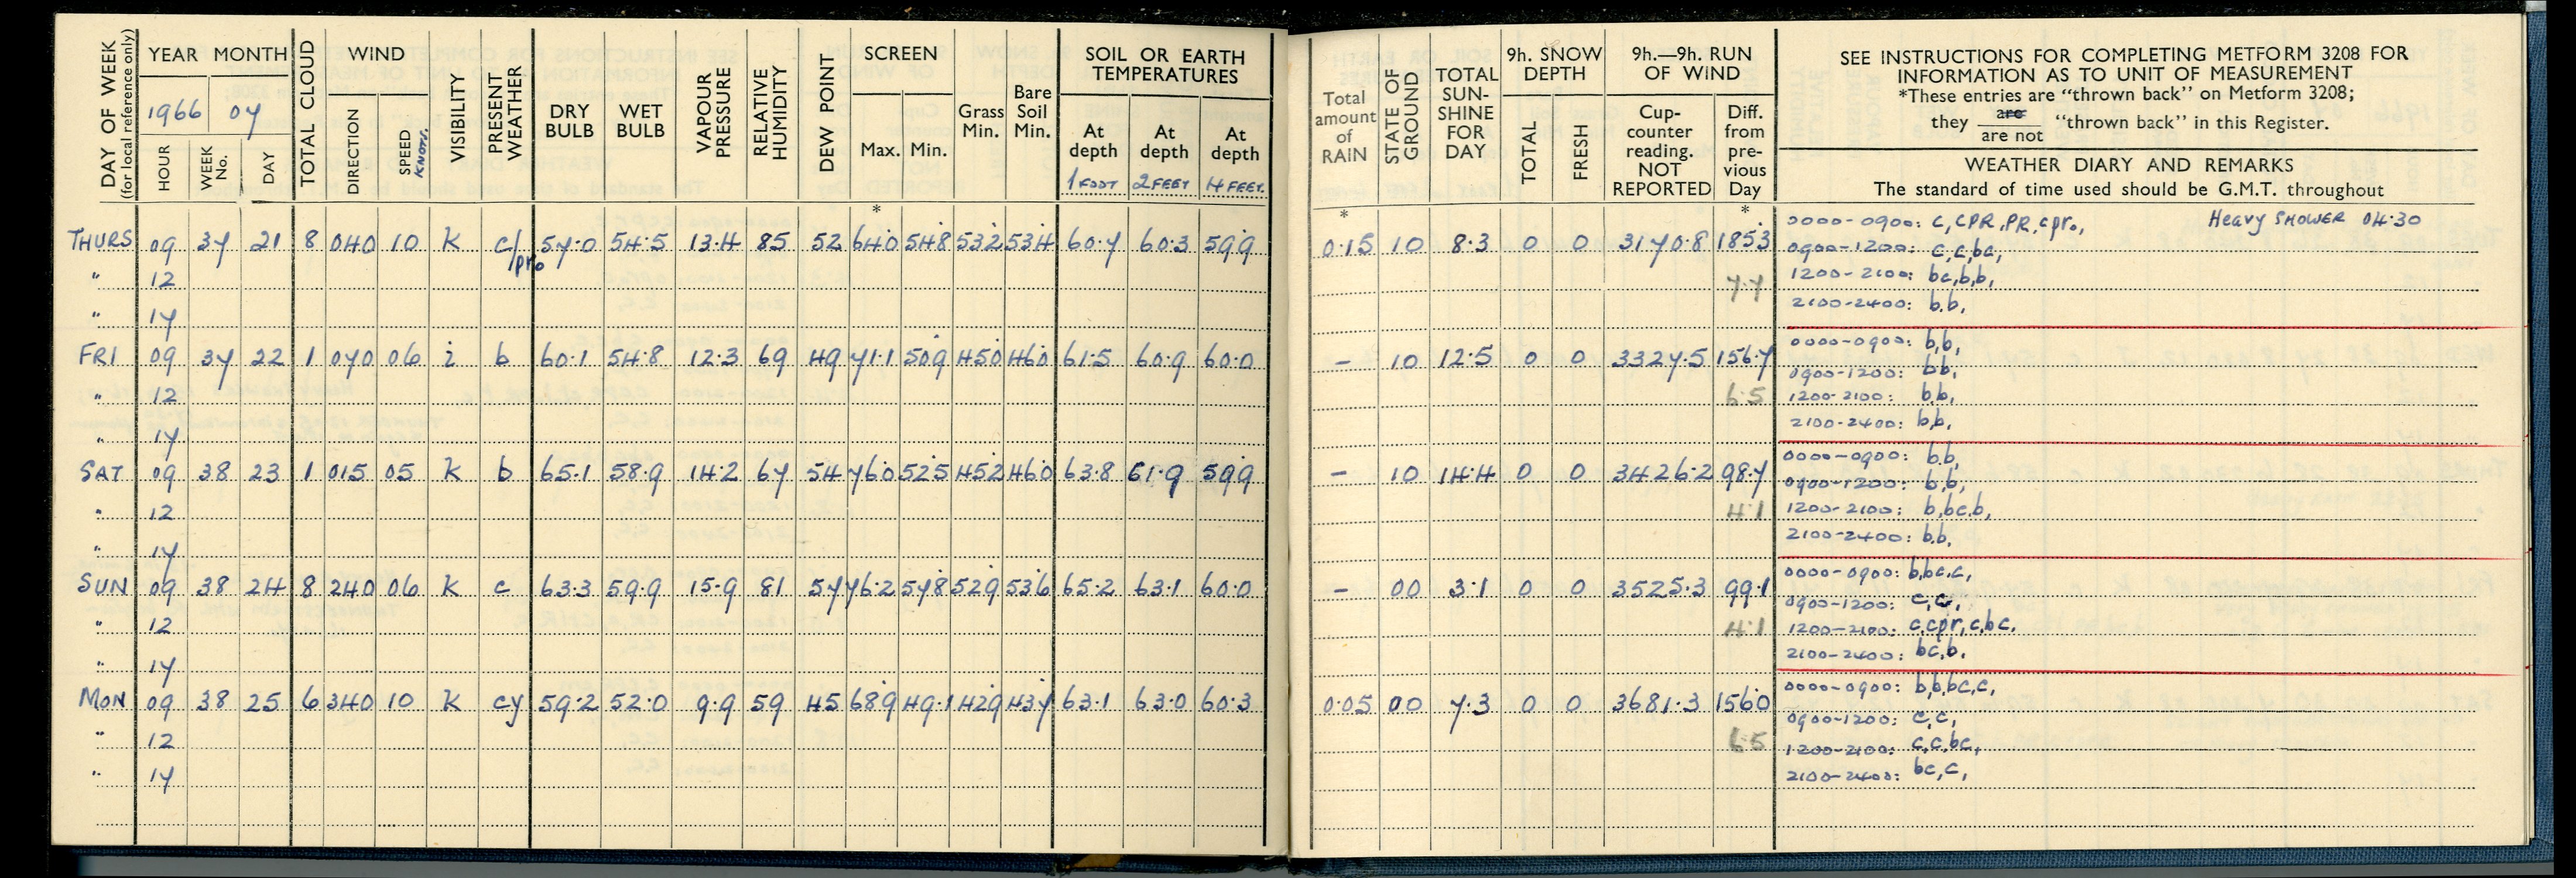 DAY OF WEEK (for local reference only) YEAR MONTH TOTAL CLOUD WIND VISIBILITY PRESENT WEATHER DRY BULB WET BULB VAPOUR PRESSURE RELATIVE HUMIDITY DEW POINT SCREEN Grass Min. Bare Soil Min. SOIL OR EARTH TEMPERATURES
1966 07
HOUR WEEK No. DAY DIRECTION SPEED KNOTS. Max. Min. At depth At depth At depth
1 FOOT 2 FEET 4 FEET.
*
THURS 09 37 21 8 040 10 K c/pr₀ 57.0 54.5 13.4 85 52 64.0 54.8 53.2 53.4 60.7 60.3 59.9
" 12
" 17
FRI 09 37 22 1 070 06 i b 60.1 54.8 12.3 69 49 71.1 50.9 45.0 46.0 61.5 60.9 60.0
" 12
" 17
SAT 09 38 23 1 015 05 K b 65.1 58.9 14.2 67 54 76.0 52.5 45.2 46.0 63.8 61.9 59.9
" 12
" 17
SUN 09 38 24 8 240 06 K c 63.3 59.9 15.9 81 57 76.2 57.8 52.9 53.6 65.2 63.1 60.0
" 12
" 17
MON 09 38 25 6 340 10 K cy 59.2 52.0 9.9 59 45 68.9 49.1 42.9 43.7 63.1 63.0 60.3
" 12
" 17
Total amount of RAIN STATE OF GROUND TOTAL SUN-SHINE FOR DAY 9h. SNOW DEPTH 9h.—9h. RUN OF WIND
TOTAL FRESH Cup-counter reading. NOT REPORTED Diff. from pre-vious Day
SEE INSTRUCTIONS FOR COMPLETING METFORM 3208 FOR
INFORMATION AS TO UNIT OF MEASUREMENT
*These entries are "thrown back" on Metform 3208;
they are / are not "thrown back" in this Register.
WEATHER DIARY AND REMARKS
The standard of time used should be G.M.T. throughout
* *
0000-0900: c,cPR,PR,cpr₀, Heavy SHOWER 04.30
0.15 10 8.3 0 0 3170.8 185.3 0900-1200: c,c,bc,
7.7 1200-2100: bc,b,b,
2100-2400: b,b,
0000-0900: b,b,
- 10 12.5 0 0 3327.5 156.7 0900-1200: b,b,
6.5 1200-2100: b,b,
2100-2400: b,b,
0000-0900: b,b,
- 10 14.4 0 0 3426.2 98.7 0900-1200: b,b,
4.1 1200-2100: b,bc,b,
2100-2400: b,b,
0000-0900: b,bc,c,
- 00 3.1 0 0 3525.3 99.1 0900-1200: c,c,
4.1 1200-2100: c,cpr,c,bc,
2100-2400: bc,b,
0000-0900: b,b,bc,c,
0.05 00 7.3 0 0 3681.3 156.0 0900-1200: c,c,
6.5 1200-2100: c,c,bc,
2100-2400: bc,c,